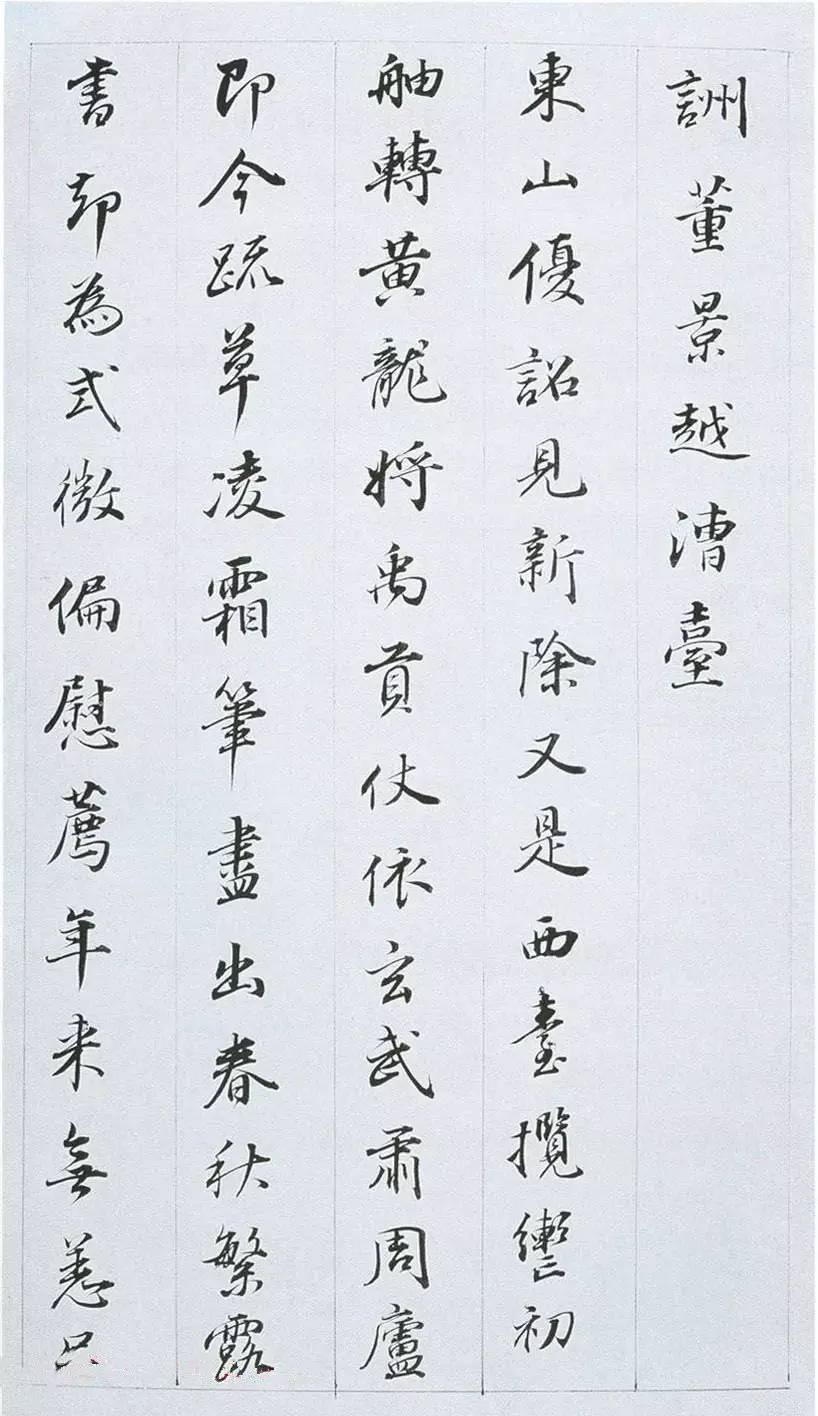 詶董景越漕臺
東山優詔見新除又是西臺攬轡初
舳轉黃龍將禹貢仗依玄武肅周廬
即今疏草凌霜筆盡出春秋繁露
書却為式微偏慰薦年來無恙只